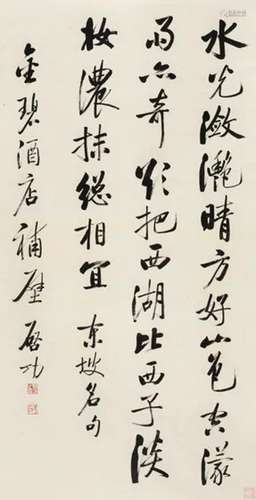 水光潋滟晴方好山色空濛
雨亦奇欲把西湖比西子淡
妆浓抹总相宜 东坡名句
金碧酒店补壁 启功